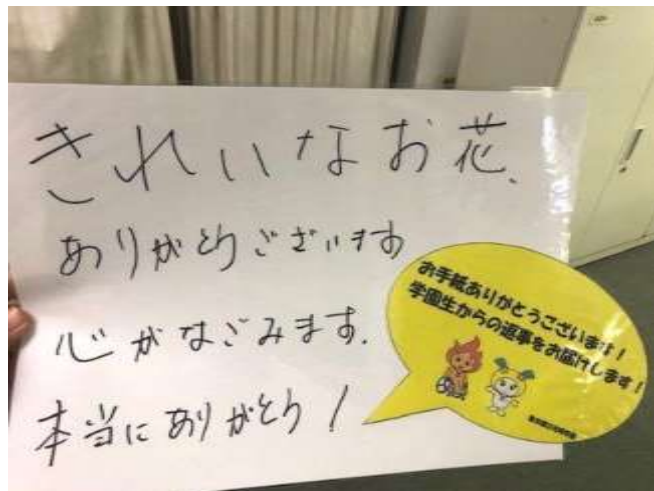 きれいなお花、
ありがとうございます
心がなごみます.
本当にありがとう!
お手紙ありがとうございます!
学園生からの返事をお届けします!